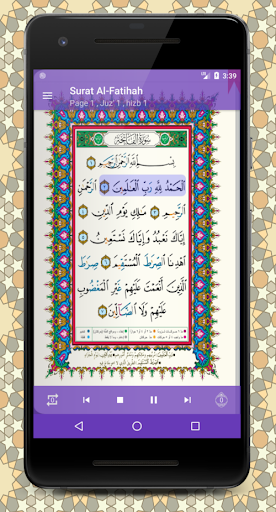 3:39
Surat Al-Fatihah
Page 1 , Juz' 1 , hizb 1
سُورَةُ الفَاتِحَةِ
بِسْمِ ٱللَّهِ ٱلرَّحْمَٰنِ ٱلرَّحِيمِ ١
ٱلْحَمْدُ لِلَّهِ رَبِّ ٱلْعَٰلَمِينَ ٢ ٱلرَّحْمَٰنِ
ٱلرَّحِيمِ ٣ مَٰلِكِ يَوْمِ ٱلدِّينِ ٤
إِيَّاكَ نَعْبُدُ وَإِيَّاكَ نَسْتَعِينُ ٥
ٱهْدِنَا ٱلصِّرَٰطَ ٱلْمُسْتَقِيمَ ٦ صِرَٰطَ
ٱلَّذِينَ أَنْعَمْتَ عَلَيْهِمْ غَيْرِ ٱلْمَغْضُوبِ
عَلَيْهِمْ وَلَا ٱلضَّآلِّينَ ٧